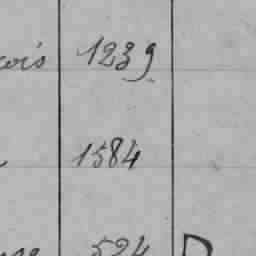 çois 1239
1584
524